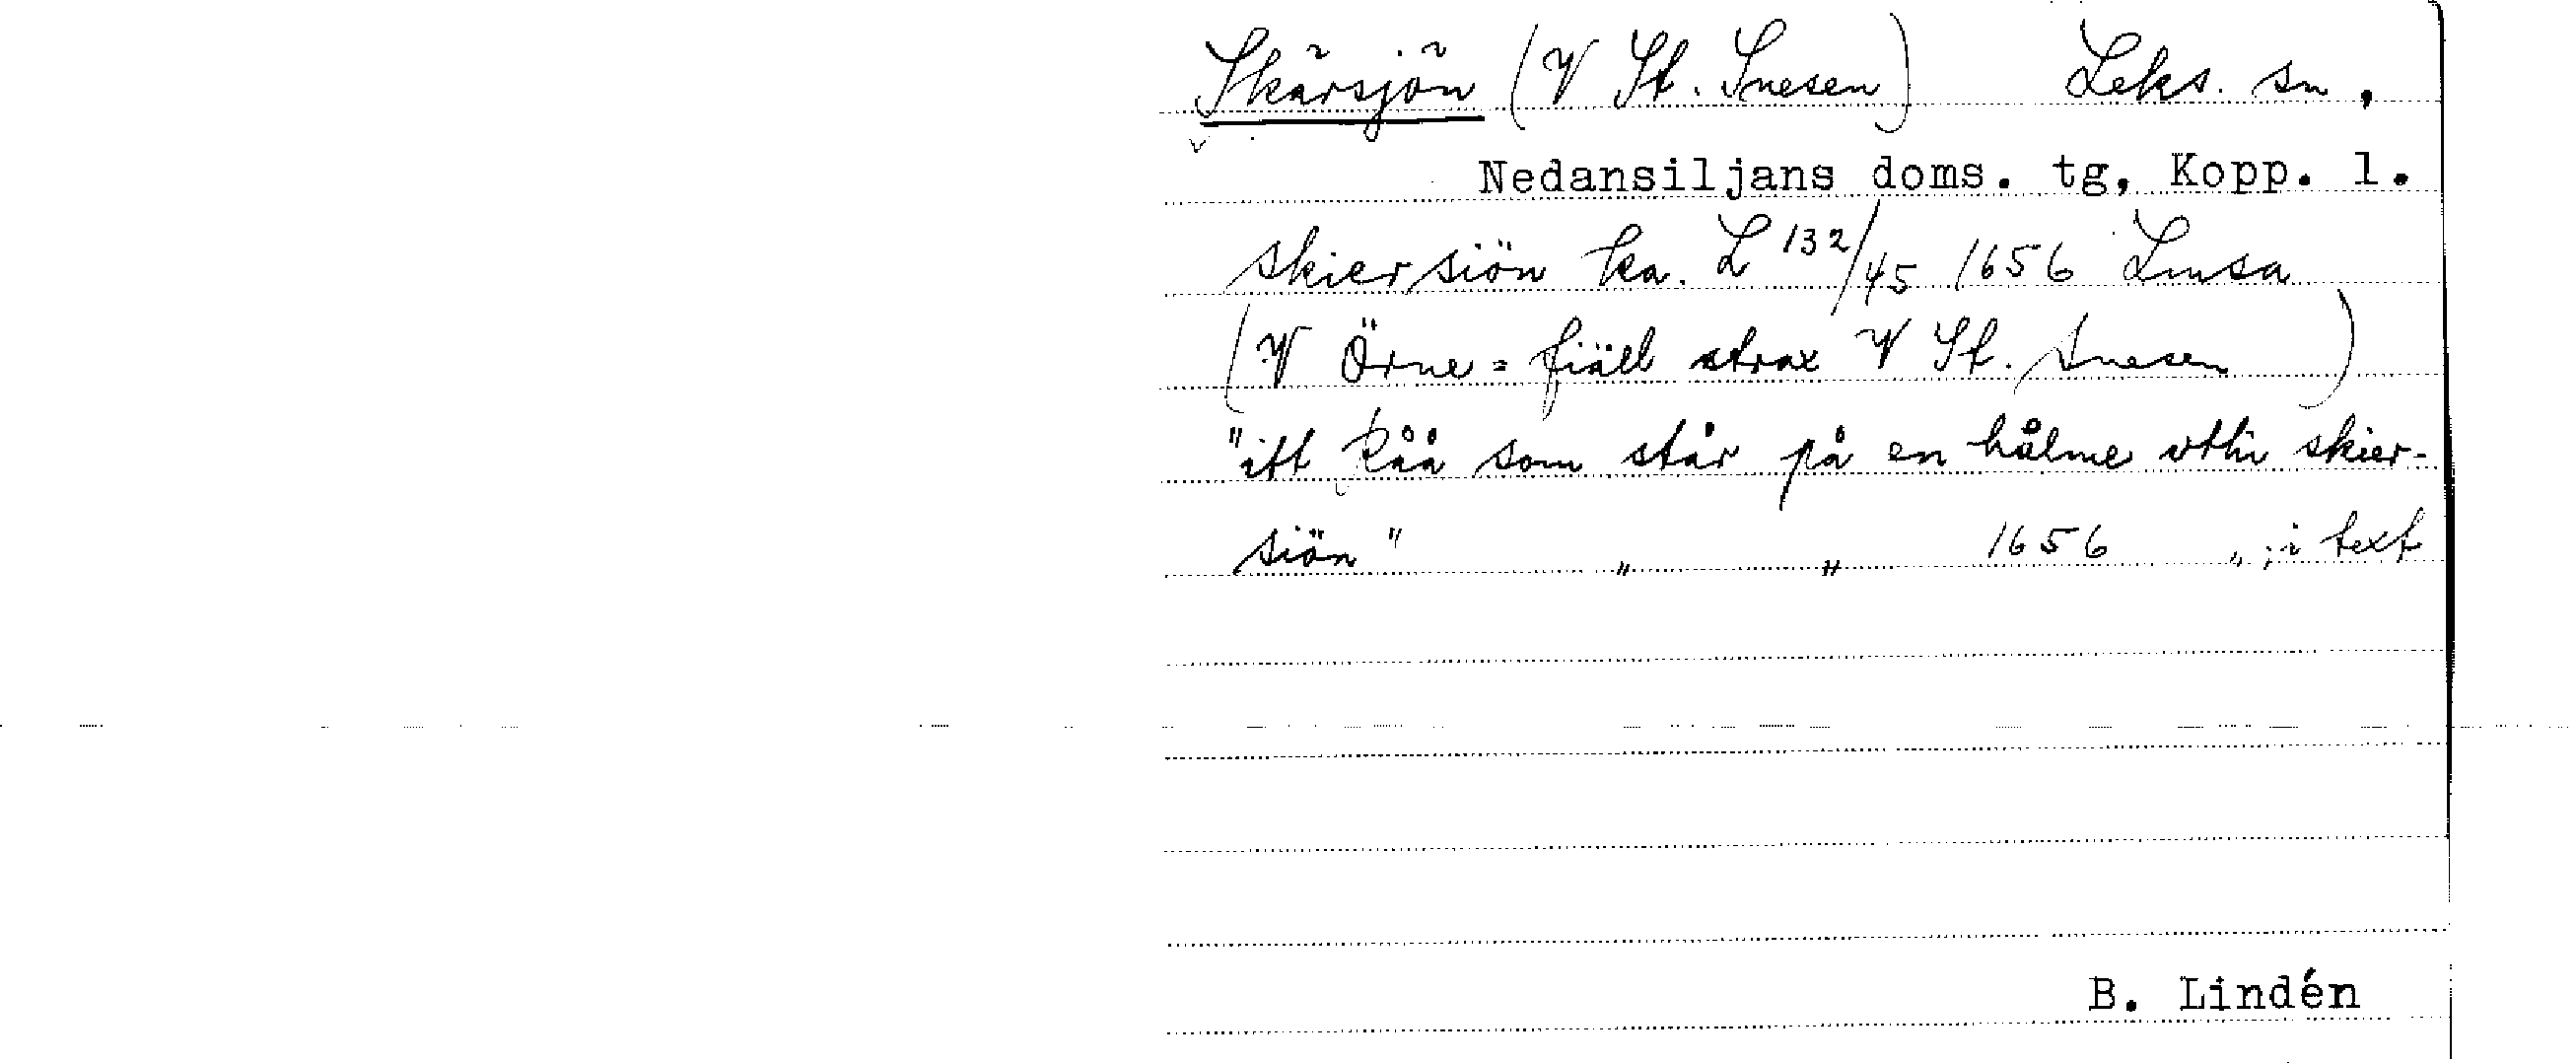 Skärsjön (V St. Snesen) Leks. sn,
Nedansiljans doms. tg, Kopp. l.
skiersiön ka. L 132/45 1656 Lmsa
(V Örne=fiäll strax V St. Snesen)
"itt Råå som står på en hålme vthi skier-
siön" " " 1656 " ; i text
B. Lindén